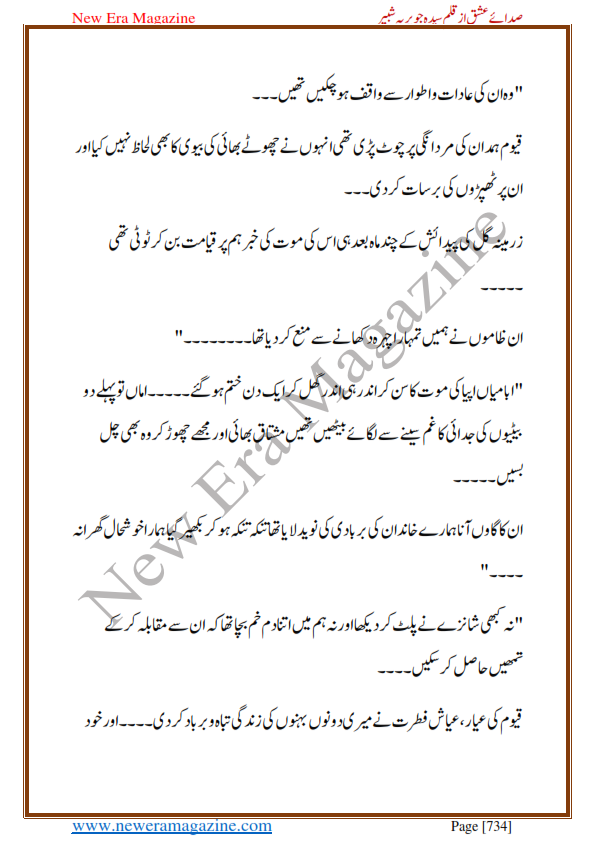 New Era Magazine
صدائے عشق از قلم سیدہ جویریہ شبیر
"وہ ان کی عادات و اطوار سے واقف ہو چکیں تھیں۔۔۔
قیوم ہمدان کی مردانگی پر چوٹ پڑی تھی انہوں نے چھوٹے بھائی کی بیوی کا بھی لحاظ نہیں کیا اور
ان پر تھپڑوں کی برسات کر دی۔۔۔
زرمینہ گل کی پیدائش کے چند ماہ بعد ہی اس کی موت کی خبر ہم پر قیامت بن کر ٹوٹی تھی
۔۔۔۔۔
ان ظاموں نے ہمیں تمہارا چہرہ دکھانے سے منع کر دیا تھا۔۔۔۔۔۔۔۔"
"ابا میاں اپیا کی موت کا سن کر اندر ہی اندر گھل کر ایک دن ختم ہو گئے۔۔۔۔۔اماں تو پہلے دو
بیٹیوں کی جدائی کا غم سینے سے لگائے بیٹھیں تھیں مشتاق بھائی اور مجھے چھوڑ کر وہ بھی چل
بسیں۔۔۔۔۔
ان کا گاوں آنا ہمارے خاندان کی بربادی کی نوید لایا تھا تنکہ تنکہ ہو کر بکھیر گیا ہمارا خوشحال گھرانہ
۔۔۔۔"
"نہ کبھی شانزے نے پلٹ کر دیکھا اور نہ ہم میں اتنا دم خم بچا تھا کہ ان سے مقابلہ کر کے
تمھیں حاصل کر سکیں۔۔۔۔
قیوم کی عیار، عیاش فطرت نے میری دونوں بہنوں کی زندگی تباہ و برباد کر دی۔۔۔۔اور خود
New Era Magazine
www.neweramagazine.com
Page [734]